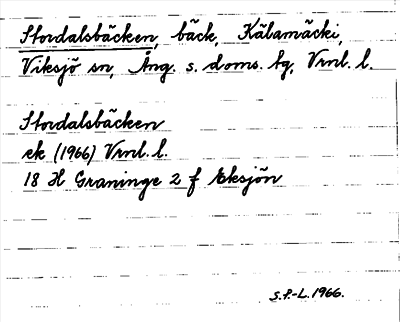 Stordalsbäcken, bäck, Kälamäcki,
Viksjö sn, Ång. s. doms. tg, Vrnl. l.
Stordalsbäcken
ek (1966) Vrnl. l.
18 H Graninge 2 f Eksjön
S.P.-L. 1966.